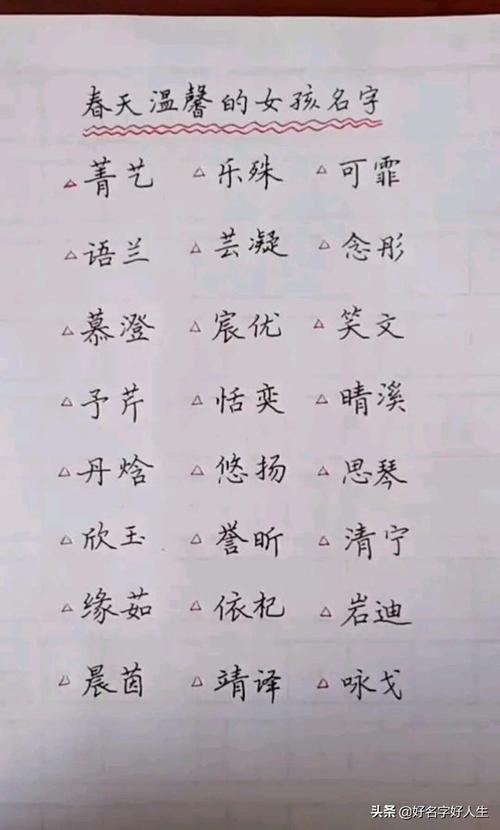 春天温馨的女孩名字
△菁艺 △乐殊 △可霏
△语兰 △芸凝 △念彤
△慕澄 △宸优 △笑文
△予芹 △恬奕 △晴溪
△丹焓 △悠扬 △思琴
△欣玉 △誉昕 △清宁
△缘茹 △依杞 △岩迪
△晨茵 △靖译 △咏戈
头条 @好名字好人生